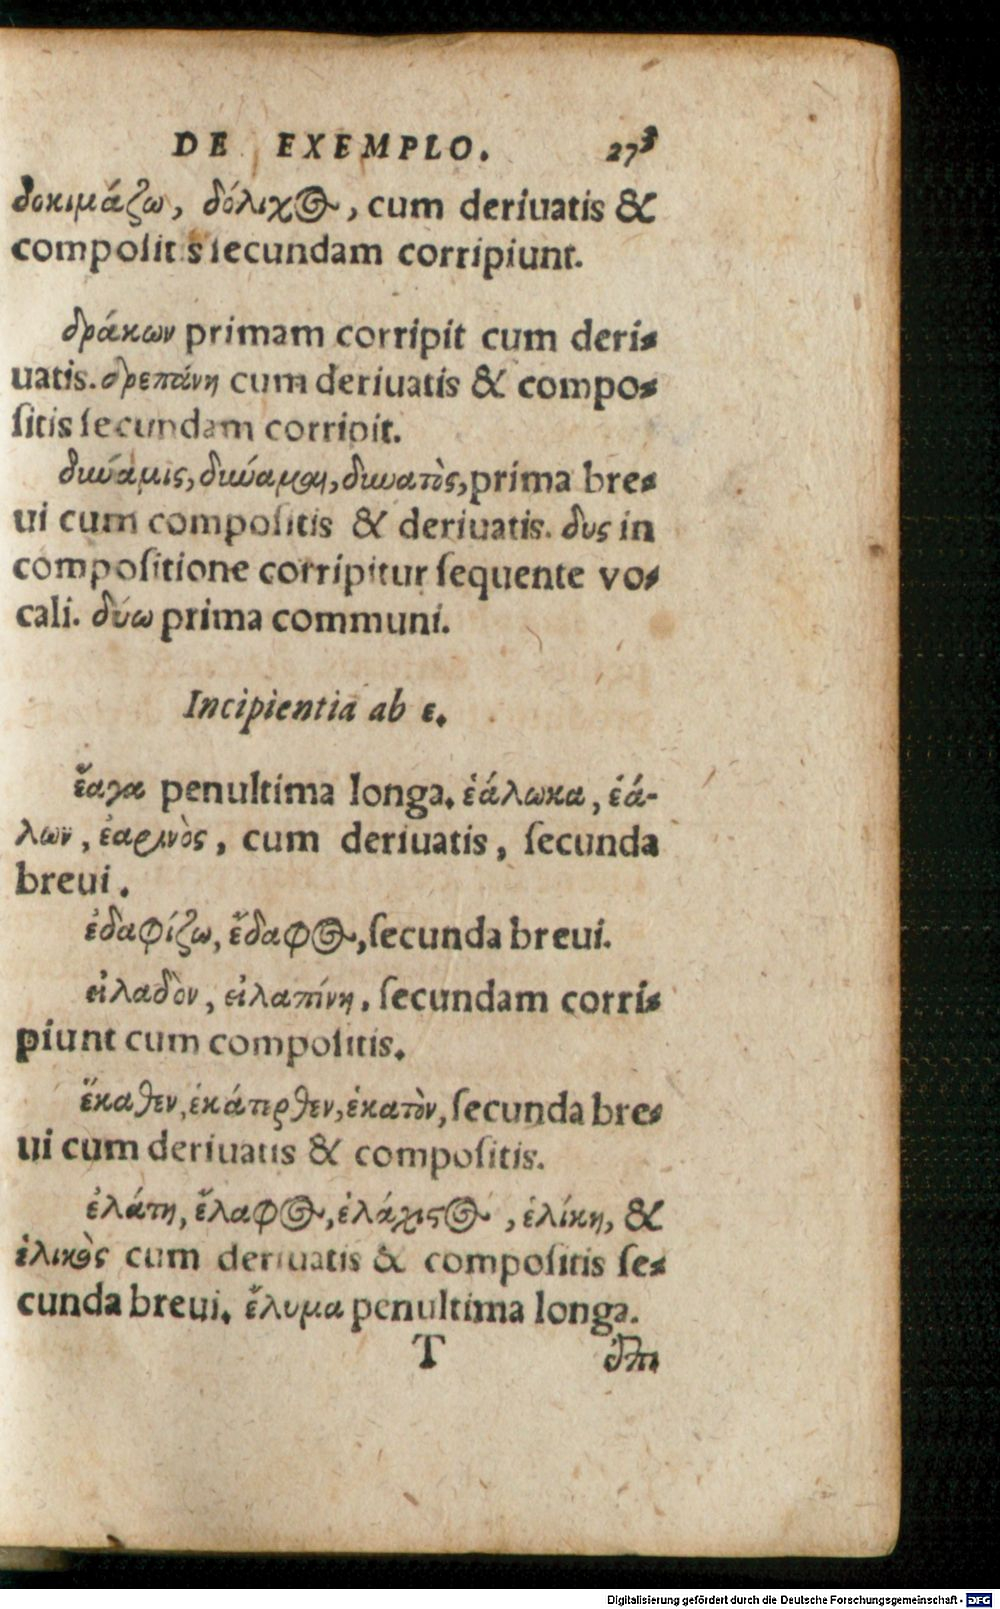 DE EXEMPLO. 273
δοκιμάζω, δόλιχος, cum deriuatis &
compoſitis ſecundam corripiunt.
δράκων primam corripit cum deri-
uatis. δρεπάνη cum deriuatis & compo-
ſitis ſecundam corripit.
δυνάμις, δυνάμαι, δυνατὸς, prima bre-
ui cum compoſitis & deriuatis. δυς in
compoſitione corripitur ſequente vo-
cali. δύω prima communi.
Incipientia ab ε.
ἔαγα penultima longa. ἑάλωκα, ἑά-
λων, ἐαρινὸς, cum deriuatis, ſecunda
breui.
ἐδαφίζω, ἔδαφος, ſecunda breui.
εἰλαδὸν, εἰλαπίνη, ſecundam corri-
piunt cum compoſitis.
ἕκαθεν, ἑκάτερθεν, ἑκατὸν, ſecunda bre-
ui cum deriuatis & compoſitis.
ἐλάτη, ἔλαφος, ἐλάχιστος, ἑλίκη, &
ἑλικὸς cum deriuatis & compoſitis ſe-
cunda breui. ἔλυμα penultima longa.
T